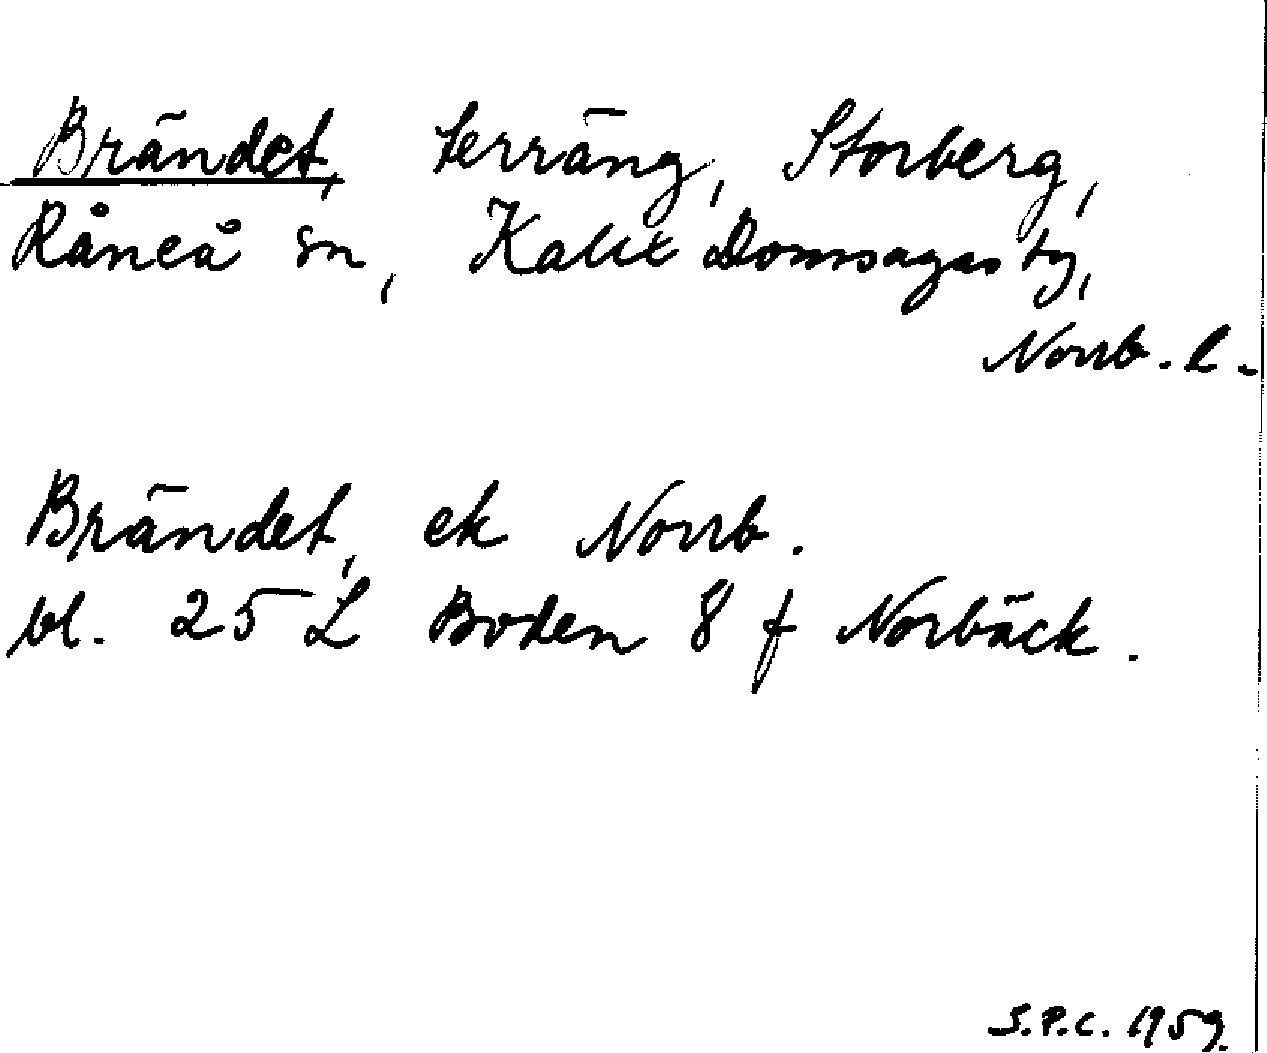 Brändet, terräng, Storberg,
Råneå sn, Kalix Domsagas tg,
Norrb. l.
Brändet, ek Norrb.
bl. 25 L Boden 8 f Norbäck.
S.P.C. 1959.